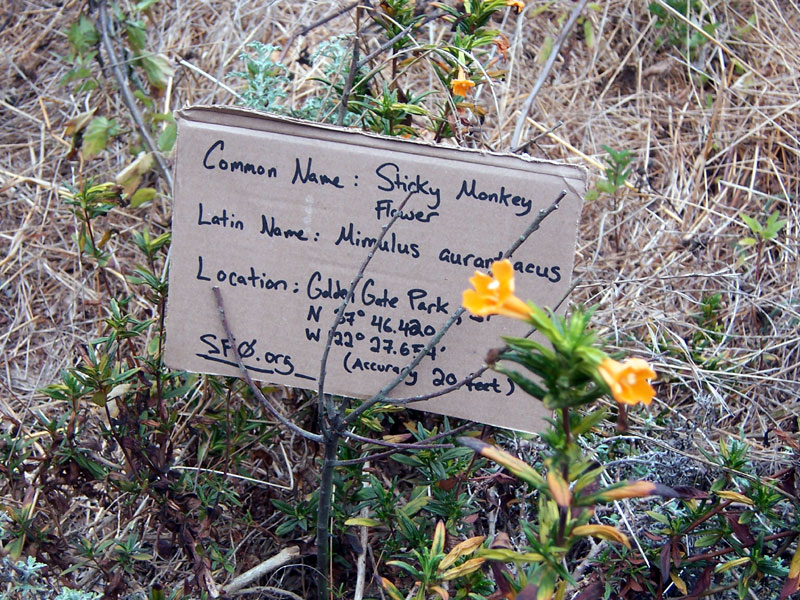 Common Name: Sticky Monkey
Flower
Latin Name: Mimulus aurantiacus
Location: Golden Gate Park,
N 37° 46.420
W 122° 27.654'
(Accuracy 20 feet)
SFØ.org